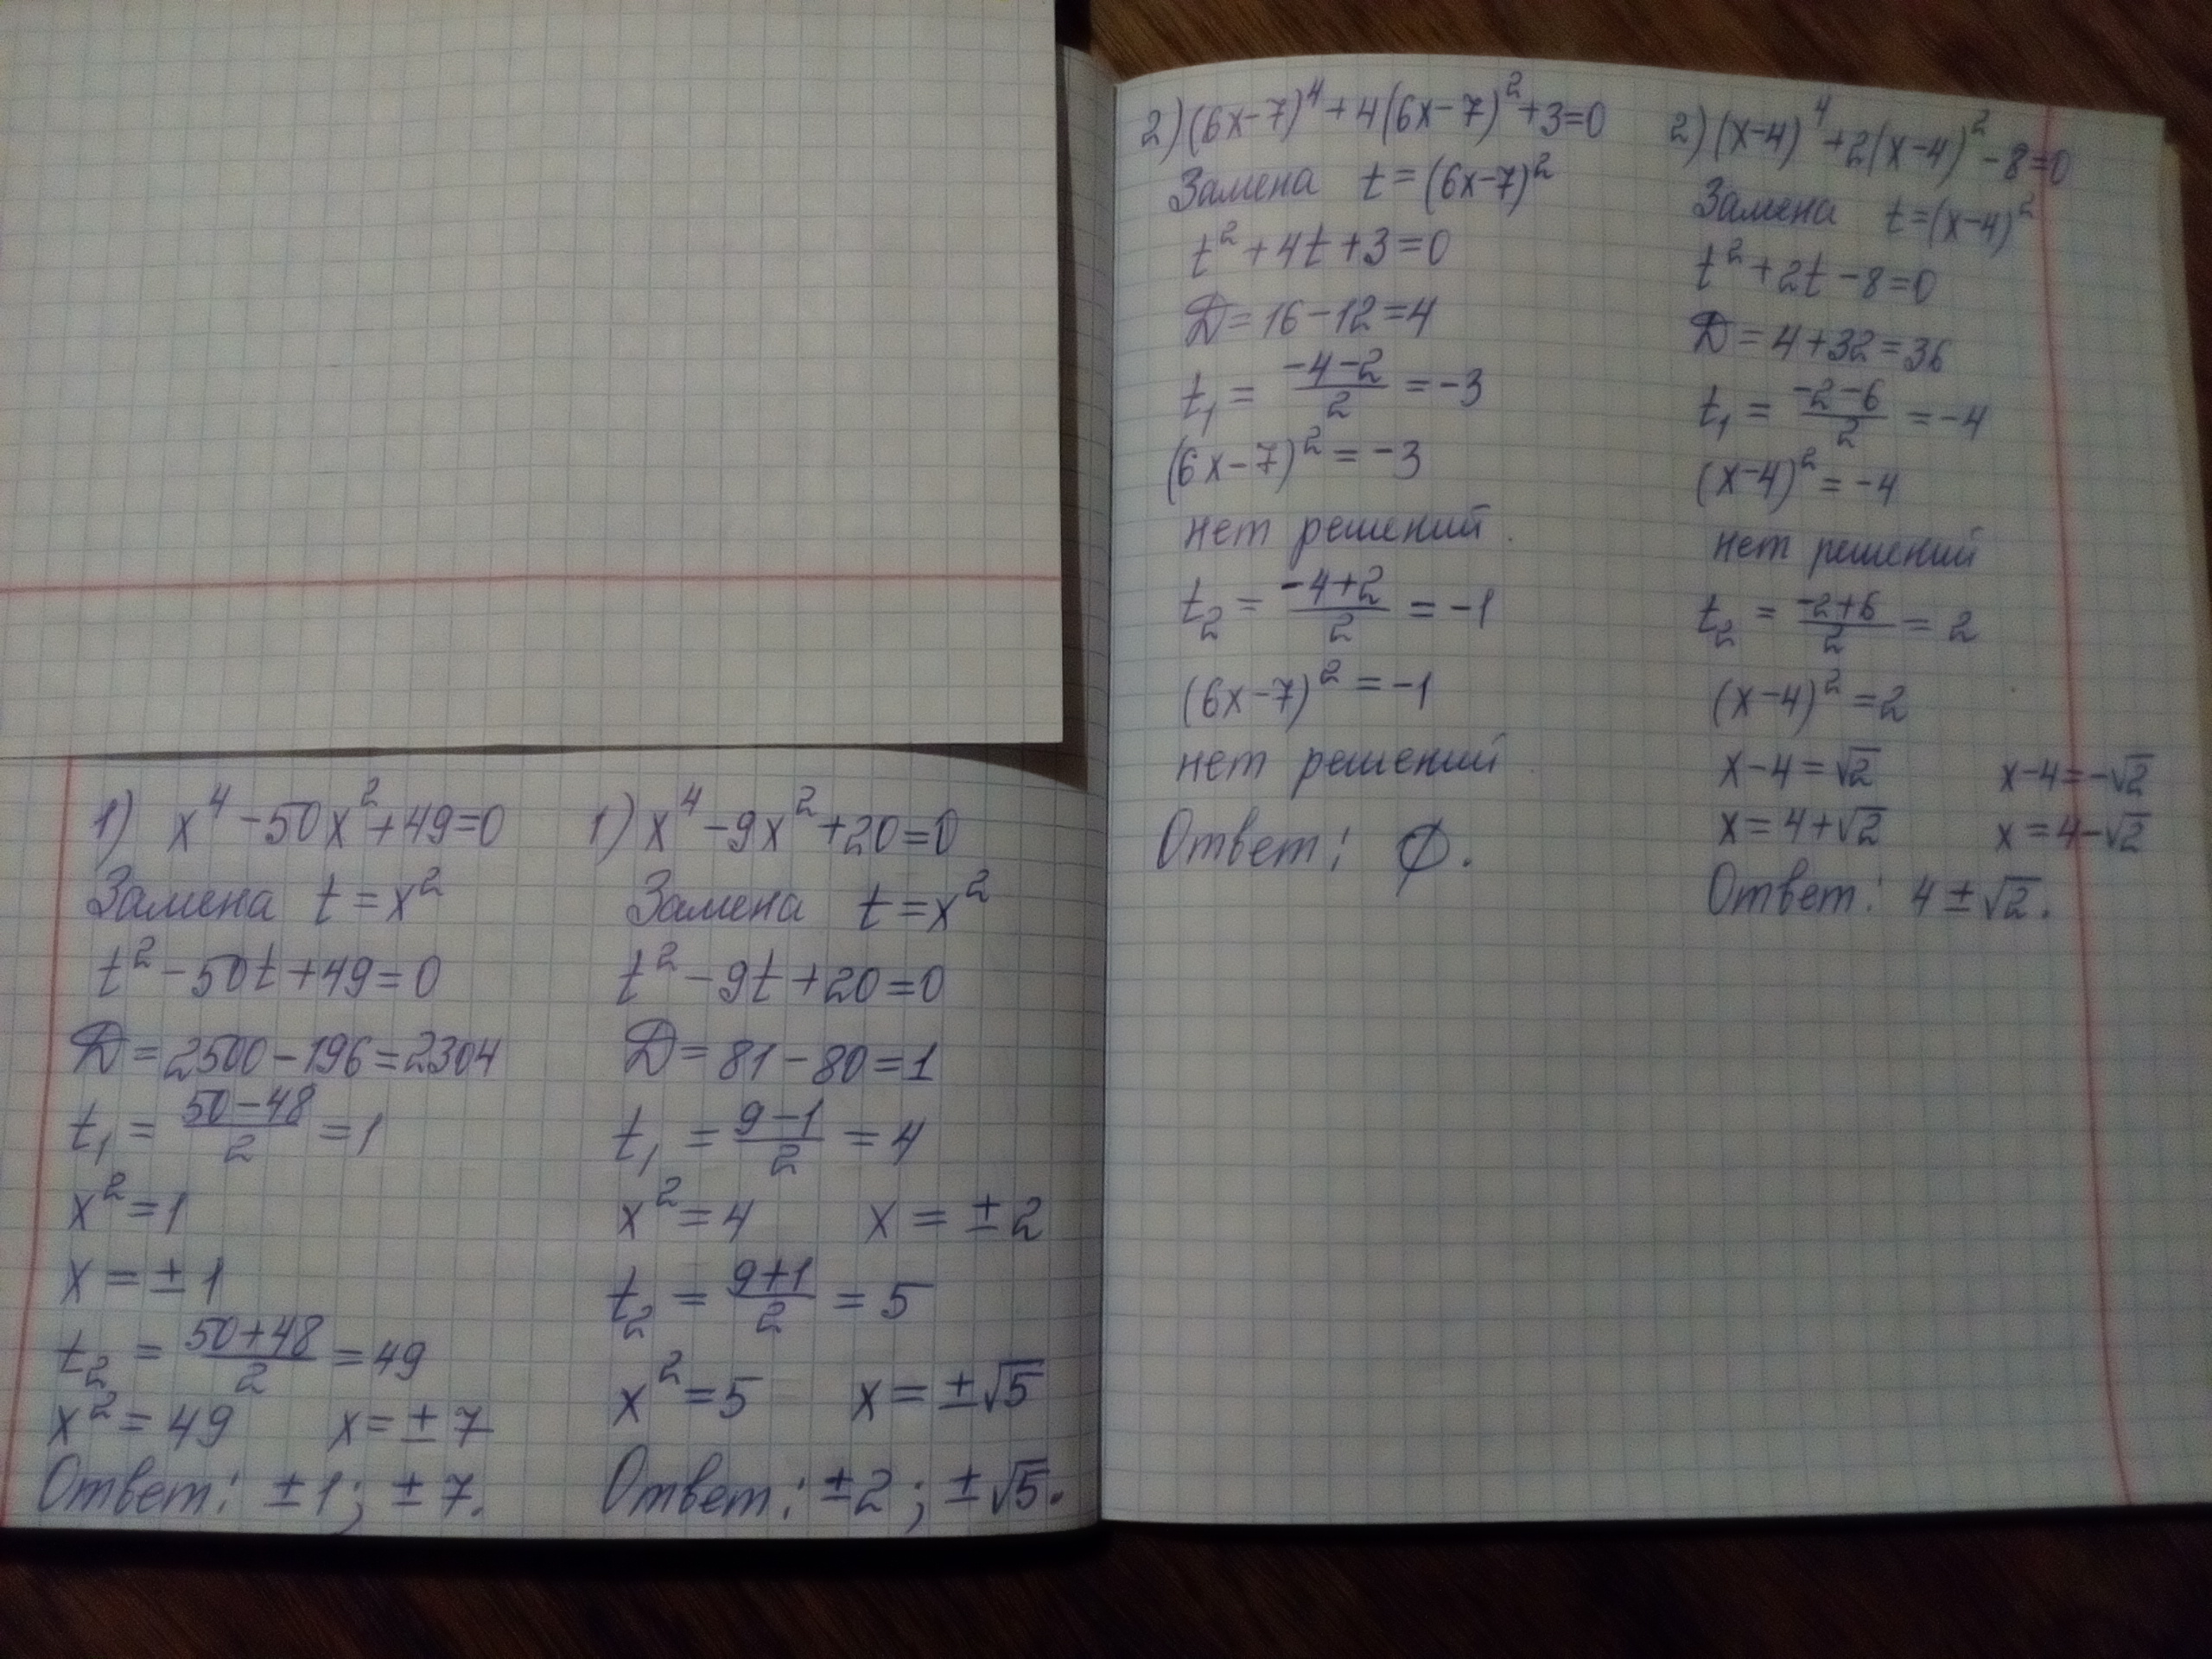 1) x⁴-50x²+49=0
Замена t=x²
t²-50t+49=0
D=2500-196=2304
t₁=(50-48)/2=1
x²=1
x=±1
t₂=(50+48)/2=49
x²=49 x=±7
Ответ: ±1; ±7.
1) x⁴-9x²+20=0
Замена t=x²
t²-9t+20=0
D=81-80=1
t₁=(9-1)/2=4
x²=4 x=±2
t₂=(9+1)/2=5
x²=5 x=±√5
Ответ: ±2; ±√5.
2) (6x-7)⁴+4(6x-7)²+3=0
Замена t=(6x-7)²
t²+4t+3=0
D=16-12=4
t₁=(-4-2)/2=-3
(6x-7)²=-3
нет решений.
t₂=(-4+2)/2=-1
(6x-7)²=-1
нет решений.
Ответ: ∅.
2) (x-4)⁴+2(x-4)²-8=0
Замена t=(x-4)²
t²+2t-8=0
D=4+32=36
t₁=(-2-6)/2=-4
(x-4)²=-4
нет решений
t₂=(-2+6)/2=2
(x-4)²=2
x-4=√2 x-4=-√2
x=4+√2 x=4-√2
Ответ: 4±√2.